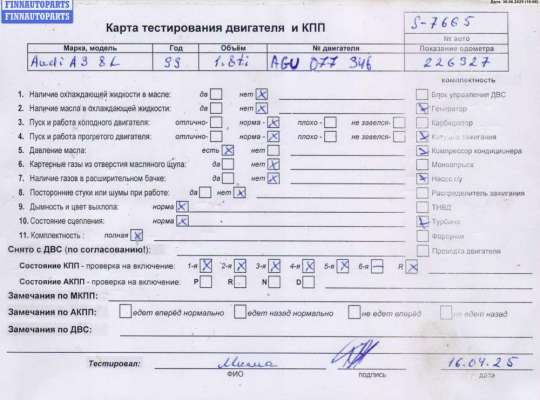 FINNAUTOPARTS
FINNAUTOPARTS
Дата: 30.06.2025
Карта тестирования двигателя и КПП
S-7665
№ авто
Марка, модель Год Объём № двигателя Показание одометра
Audi A3 8L 99 1.8Ti AGU 077 346 226327
комплектность
1. Наличие охлаждающей жидкости в масле: да нет X Блок управления ДВС
2. Наличие масла в охлаждающей жидкости: да нет X Генератор
3. Пуск и работа холодного двигателя: отлично- норма - X плохо- не завелся- Карбюратор
4. Пуск и работа прогретого двигателя: отлично- норма - X плохо - не завелся- Катушка зажигания
5. Давление масла: есть X нет Компрессор кондиционера
6. Картерные газы из отверстия масляного щупа: да нет X Моновпрыск
7. Наличие газов в расширительном бачке: да нет X Насос г/у
8. Посторонние стуки или шумы при работе: да нет X Распределитель зажигания
9. Дымность и цвет выхлопа: норма X ТНВД
10. Состояние сцепления: норма X Турбина
11. Комплектность : полная X Форсунки
Снято с ДВС (по согласованию!): Проводка двигателя
Состояние КПП - проверка на включение: 1-я X 2-я X 3-я X 4-я X 5-я X 6-я R X
Состояние АКПП - проверка на включение: P R N D
Замечания по МКПП:
Замечания по АКПП: едет вперёд нормально едет назад нормально не едет вперёд не едет назад
Замечания по ДВС:
Тестировал: 16.04.25
ФИО подпись дата